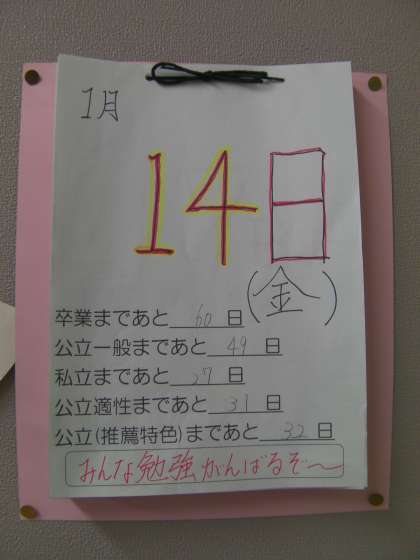 1月
14日
(金)
卒業まであと 60 日
公立一般まであと 49 日
私立まであと 27 日
公立適性まであと 31 日
公立(推薦特色)まであと 32 日
みんな勉強がんばるぞ〜